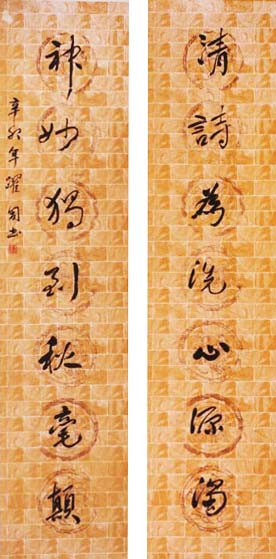 清詩為洗心源濁
神妙獨到秋毫顛
辛卯年躍國書